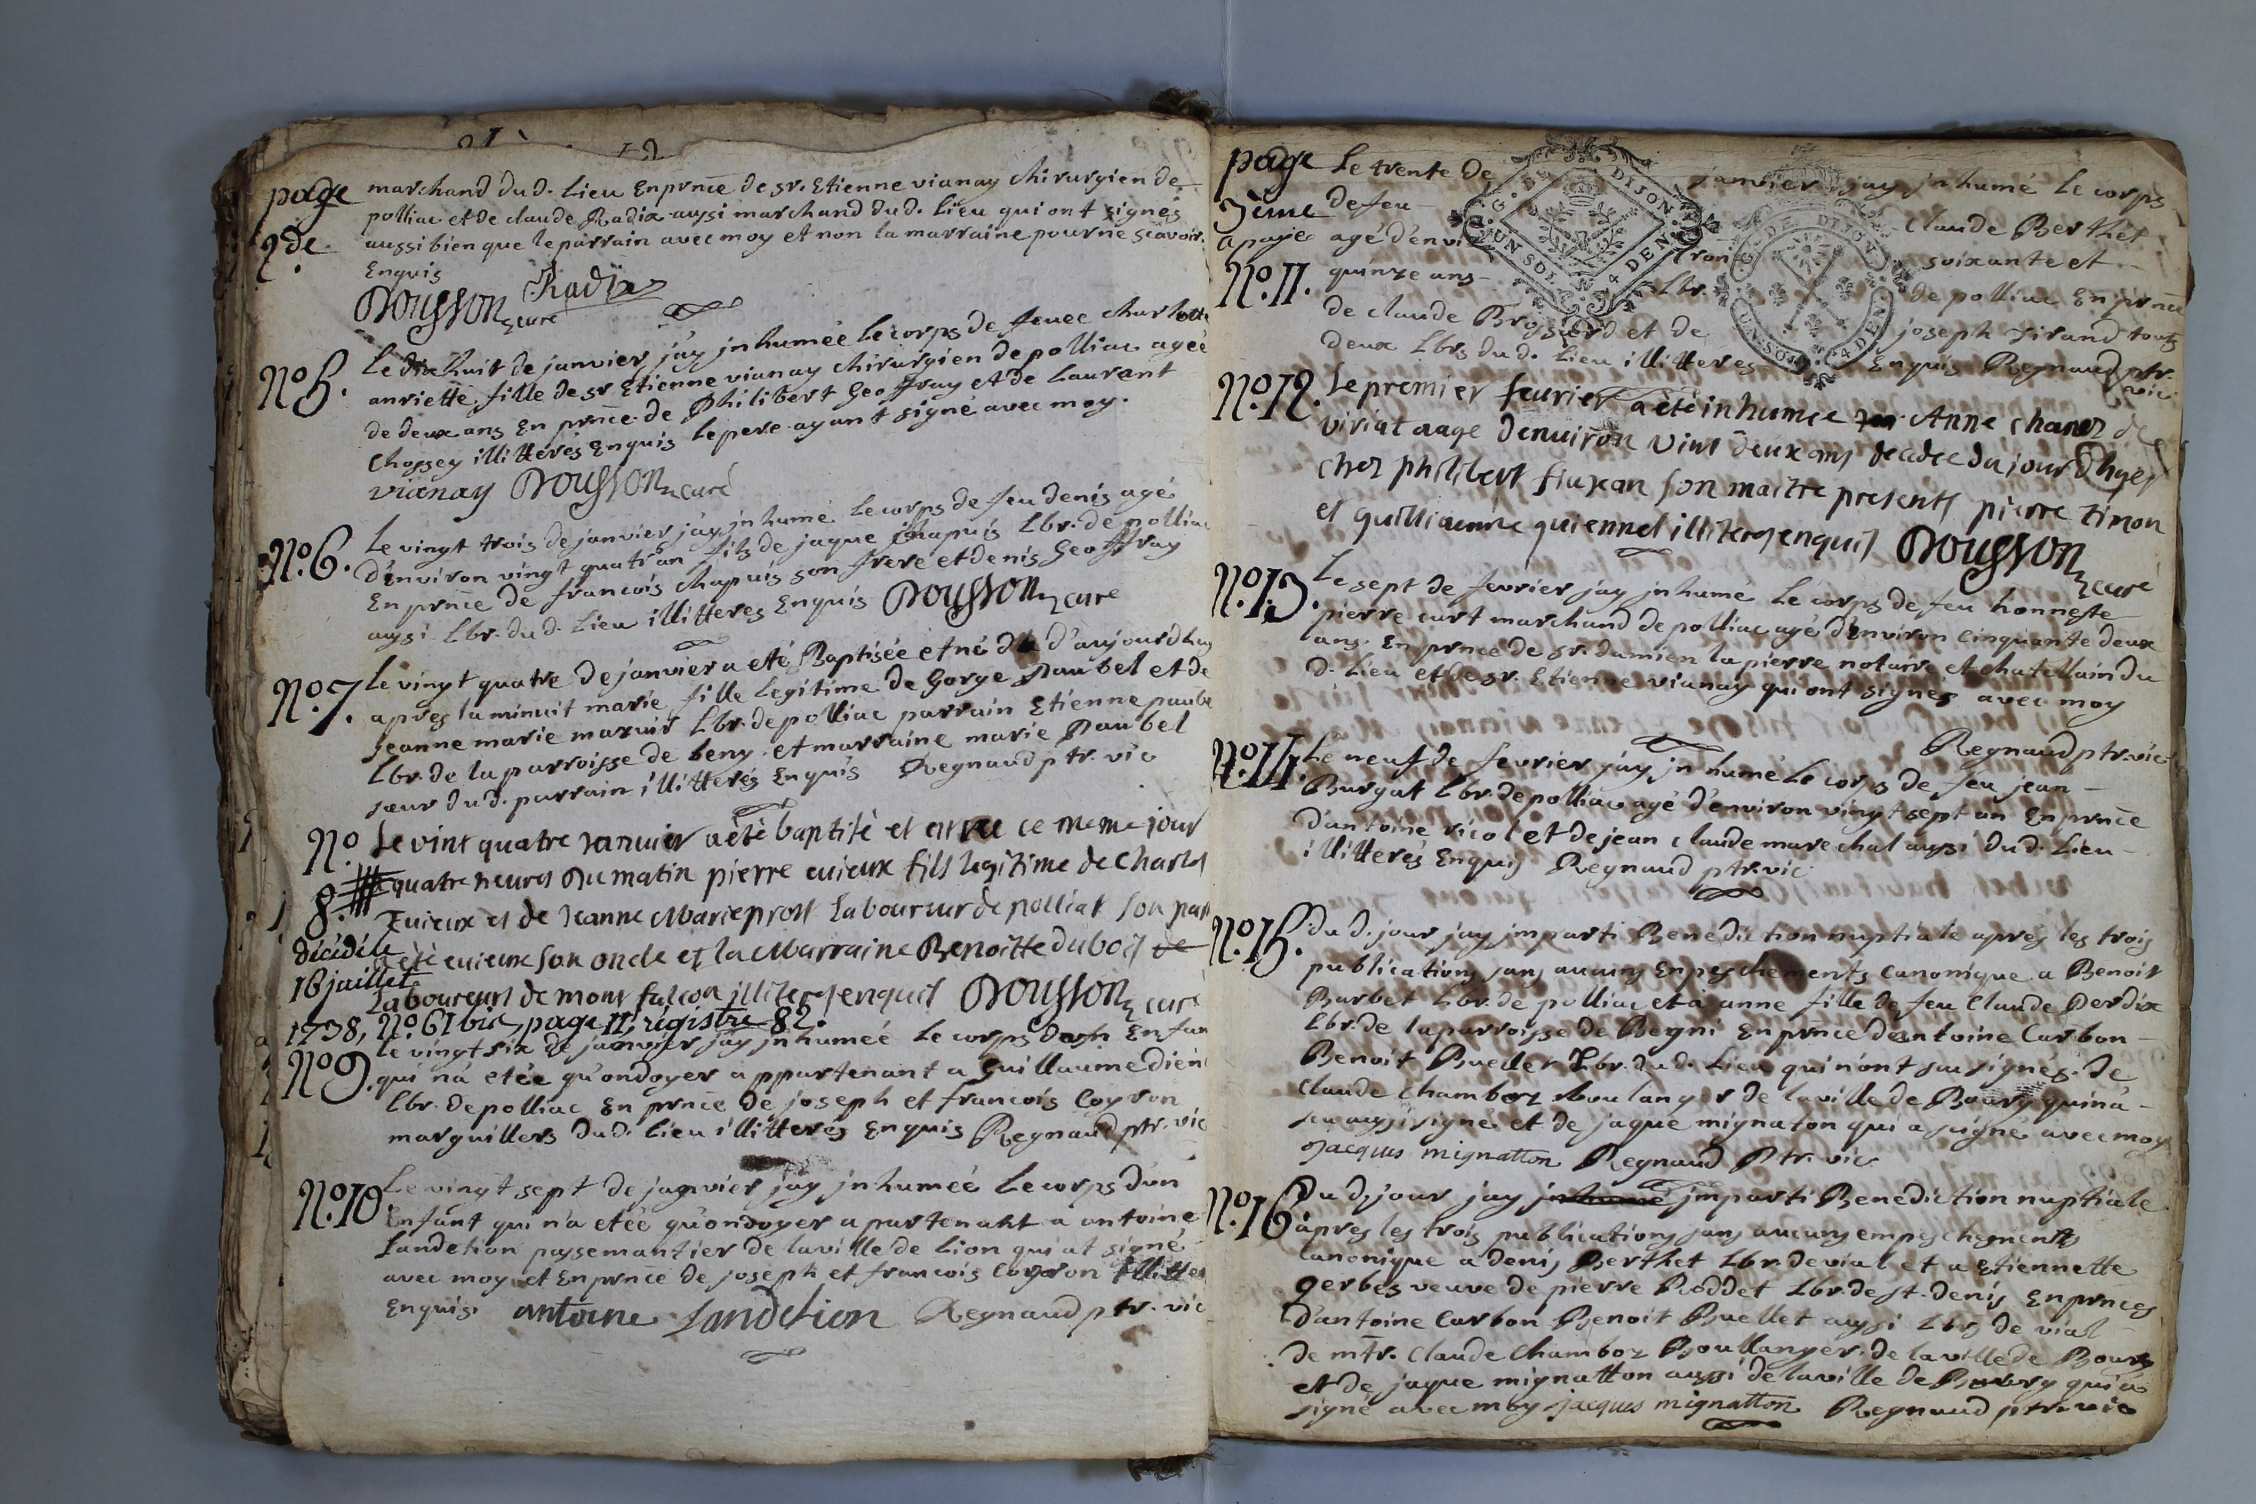 page
2de.
marchand dud. Lieu Enprnce de sr. Etienne vianay chirurgien de
polliac et de claude Radix aussi marchand dud. Lieu qui ont signés
aussi bien que le parrain avec moy et non la marraine pour ne scavoir
Enquis
Radix
Dousson curé
No 5.
Le dix huit de janvier j'ay jnhumée le corps de feuee charlotte
anriette fille de sr Etienne vianay chirurgien de polliac agée
de deux ans En prnce de Philibert Geoffray et de Laurant
Chossey illitterés Enquis le pere ayant signé avec moy.
vianay Dousson curé
No. 6.
Le vingt trois de janvier j'ay jnhumé le corps de feu denis agé
d'environ vingt quatr'an fils de jaque chapuis Lbr. de polliac
En prnce de francois chapuis son frere et denis Geoffray
aussi Lbr. dud. Lieu illitteres Enquis Dousson curé
No. 7.
Le vingt quatre de janvier a eté Baptisée et né d'aujourd'huy
apres la minuit marie fille legitime de Gorge Paubel et de
jeanne marie maruir Lbr. de polliac parrain Etienne paubel
Lbr. de la parroisse de beny et marraine marie Paubel
sœur dud. parrain illitterés Enquis Regnaud ptr. vic
No
8.
Le vint quatre Januier a été baptisé et est né ce meme jour
a quatre heures du matin pierre euieux fils legitime de Charles
Euieux et de Jeanne Marie prost Laboureur de polliat son parr
a été euieux son oncle et la Marraine Benoitte dubois de
Laboureurs de mont falcon illiteres enquis Dousson curé
décédé le
16 juillet
1738, No. 61 bis, page 11, régistre 82.
No 9.
Le vingt six de janvier jay jnhumée le corps d'un Enfan
qui n'a etée qu'ondoyer appartenant a Guillaume dien
Lbr. de polliac En prnce de joseph et francois Coyron
marguillers dud. Lieu illitterés Enquis Regnaud ptr. vic
No. 10.
Le vingt sept de janvier jay jnhumée Le corps d'un
Enfant qui n'a etée qu'ondoyer apartenant a antoine
Landelion passemantier de la ville de Lion qui at signé
avec moy et En prnce de joseph et francois Coyron illitter
Enquis. antoine Landelion Regnaud ptr. vic
page
3ème
a payé
G. DE DIJON.
UN SOL. 4 DEN.
G. DE DIJON.
UN SOL. 4 DEN.
No. 11.
Le trente de janvier jay jnhumé Le corps
de feu claude Berthet
agé d'environ soixante et
quinze ans Lbr. de polliac En prnce
de claude Brossierd et de joseph Tirand touts
deux Lbrs dud. Lieu illitteres Enquis Regnaud ptr.
vic
No. 12.
Le premier feurier a été inhumee Anne chanes dee
viriat aage denuiron vint deux ans decedee du jour d'hyer
chez philibert fluxan son maitre presents pierre timon
et guilliaume quiennet illiteres enquis Dousson curé
No. 13.
Le sept de fevrier jay jnhumé Le corps de feu honneste
pierre curt marchand de polliac agé d'environ cinquante deux
ans. En prnce de sr. damien lapierre notaire et chatellain du
d. Lieu et de sr. Etienne vianay qui ont signés avec moy
Regnaud ptr. vic
No. 14.
Le neuf de fevrier j'ay jnhumé Le corps de feu jean
Burgat Lbr. de polliac agé d'environ vingt sept an En prnce
d'antoine ricol et de jean claude marechal aussi dud. Lieu
illitterés Enquis Regnaud ptr. vic
No. 15.
Du d. jour jay jmparti Benediction nuptiale apres les trois
publications sans aucuns Enpeschements canonique a Benoit
Barbet Lbr. de polliac et à anne fille de feu Claude Perdix
Lbr. de la parroisse de Begni En prnce d'antoine Carbon
Benoit Buellet Lbr. dud. Lieu qui n'ont seu signés. de
Claude Chamboz Boulanger de la ville de Bourg qui n'a
seu aussi signé. et de jaque mignaton qui a signé avec moy
Jacques mignatton Regnaud Ptr. vic
No. 16.
Du d. jour jay jnhumé jmparti Benediction nuptiale
apres les trois publications sans aucuns empeschements
canonique a denis Berthet Lbr. de vial et a Etiennette
gerbes veuve de pierre Roddet Lbr. de st. denis En prnces
d'antoine Carbon Benoit Buellet aussi Lbrs de vial
de mtr. Claude Chamboz Boullanger. de la ville de Bourg
et de jaque mignatton aussi de la ville de Bourg qui a
signé avec moy jacques mignatton Regnaud ptr. vic